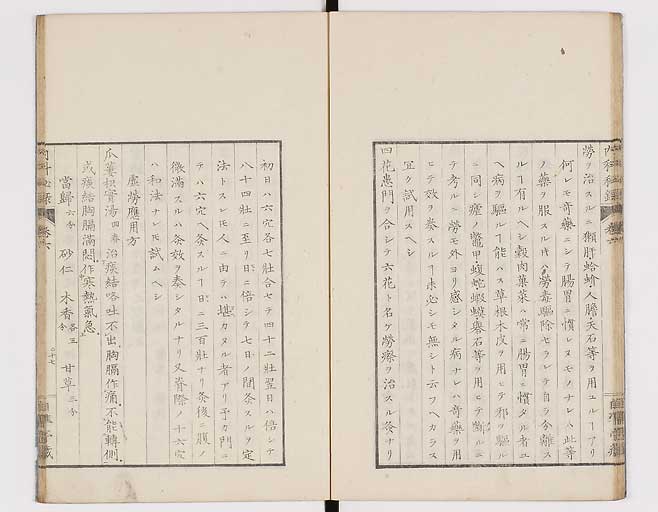 勞ヲ治スルニ獺肝蛤蚧人膽天石等ヲ用ユルヿアリ
何レモ奇藥ニシテ腸胃ニ慣レヌモノナレハ此等
ノ藥ヲ服スル片ハ勞毒驅除セラレテ自ラ分離ス
ルヿ有ルヘシ穀肉菓菜ハ常ニ腸胃ニ慣タル者ユ
ヘ病ヲ驅ルヿ能ハス草根木皮ヲ用ヒテ邪ヲ驅ル
ニ同シ瘧ノ鼈甲蝮蛇蝦蟆礬石等ヲ用ヒテ斷ルニ
テ考ルニ勞モ外ヨリ感シタル病ナレハ奇藥ヲ用
ヒテ效ヲ奏スルヿ未必シモ無シト云フヘカラス
宜ク試用スヘシ
四花患門ヲ合シテ六花ト名ケ勞瘵ヲ治スル灸ナリ
初日ハ六穴各七壯合セテ四十二壯翌日ハ倍シテ
八十四壯ニ至リ日ニ倍シテ七日ノ間灸スルヲ定
法トスレモ人ニ由テハ堪カタル者アリ予カ門ニ
テハ六穴ヘ灸スルヿ日ニ三百壯ナリ灸後ニ腹ノ
微滿スルハ灸效ヲ奏シタルナリ又脊際ノ十六穴
ハ和法ナレモ試ムヘシ
虛勞應用方
瓜蔞枳實湯 回春 治痰結咯吐不出胸膈作痛不能轉側
或痰結胸膈滿悶作寒熱氣急
當歸 六分 砂仁 木香 各五分 甘草 三分
卷六